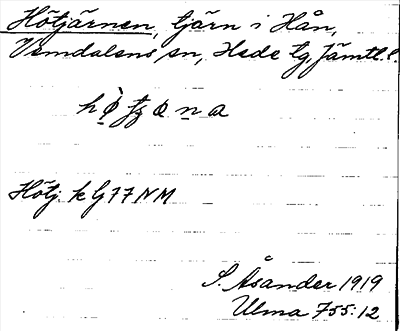 Hötjärnen, tjärn i Hån,
Vemdalens sn, Hede tg, Jämtl. l.
Hötj. k G 77 NM
S. Åsander 1919
Ulma 755:12